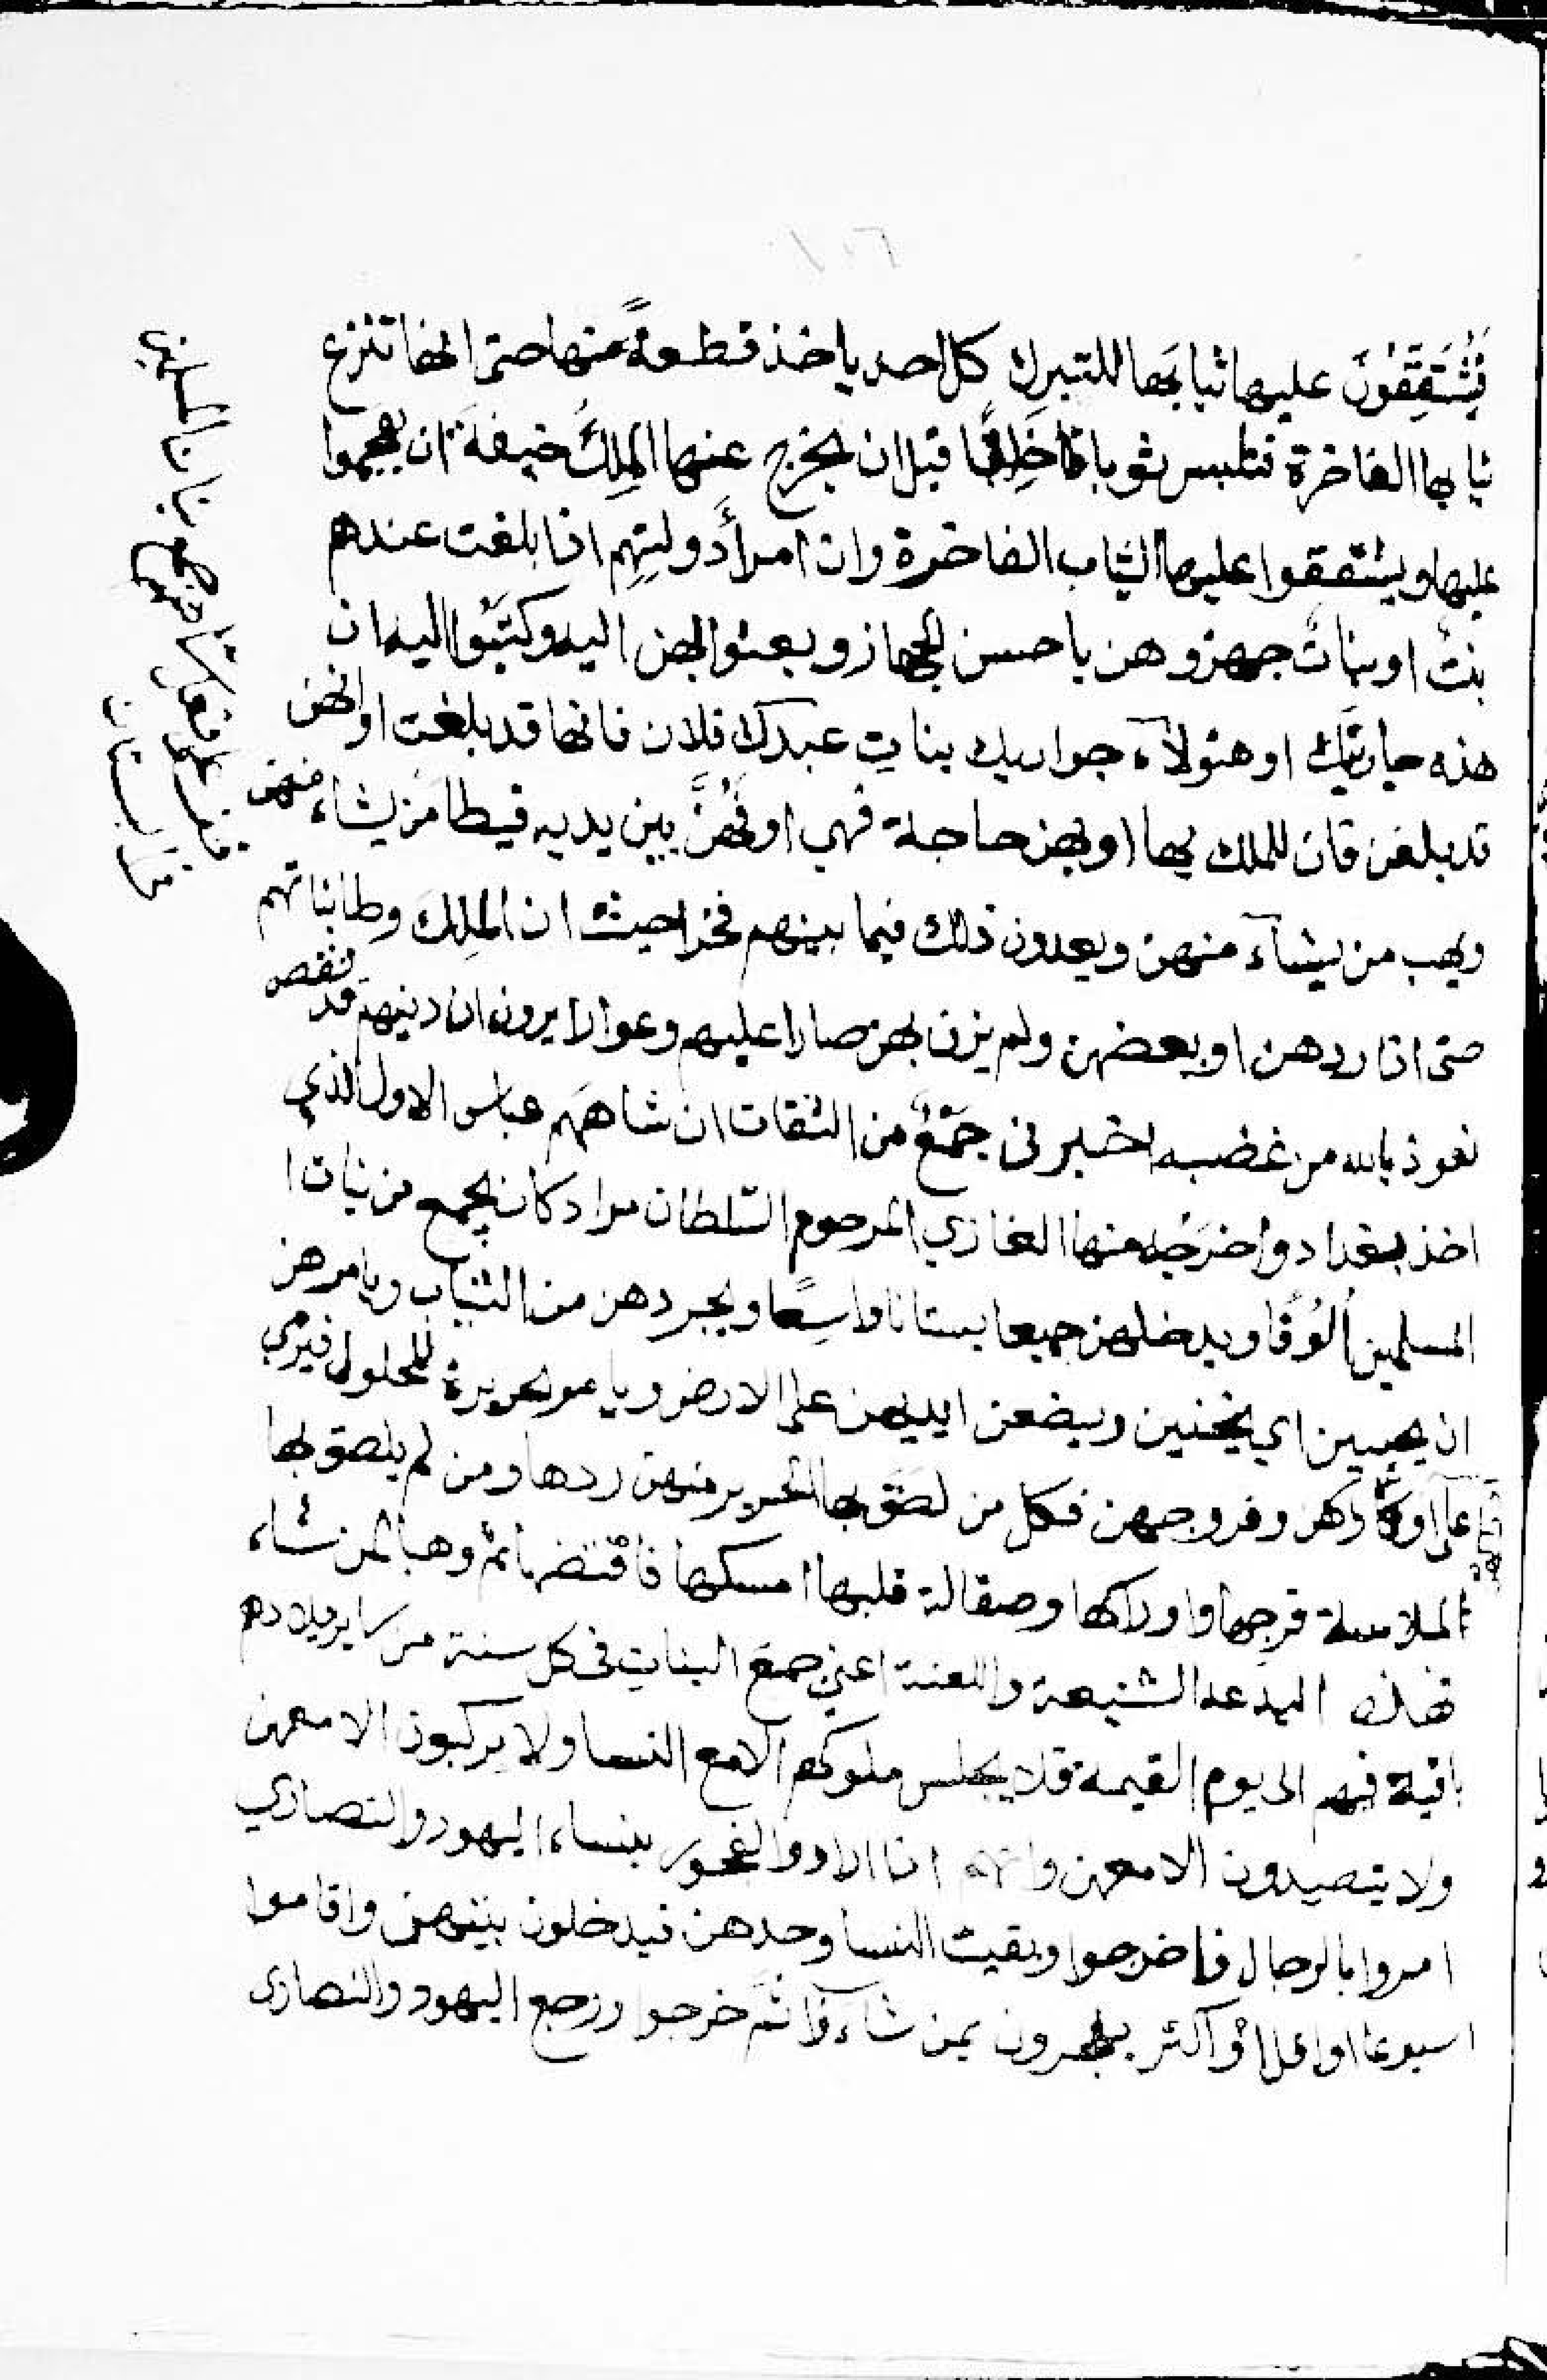 ١٠٦
فَيُشَقِّقُونَ عليها ثيابَها للتبرك كل احد ياخذ قطعةً منها حتى انها تنزع
ثيابها الفاخرة فتلبس ثوبا خَلِقًا قبل ان يخرج عنها الملِكُ خيفةَ ان يهجموا
عليها ويشققوا عليها الثياب الفاخرة وان امرأ دولتِهِم اذا بلغت عندهم
بنتٌ او بناتٌ جهزوهن باحسن الجهاز وبعثوا بهن اليه وكتبُوا اليه ان
هذه جاريتك او هٶلآء جواريك بناتِ عبدك فلان فانها قد بلغت او انهن
قد بلغن فان للملك بها او بهن حاجة فهي او فهُنَّ بين يديه فيطا مَن يشاء منهن
ويهب من يشآء منهن ويعدون ذلك فيما بينهم فخرا حيث ان الملِك وطأ بناتهم
حتى اذا ردهن او بعضهن ولم يزن بهن صار اعليهم وعوا لا يرون ان دينهم قد نقص
نعوذ بالله من غضبه اخبرنى جَمْعٌ من الثقات ان شاهَهم عباس الاول الذي
اخذ بغداد واخرَجه منها الغازي المرحوم السّلطان مراد كان يجمع من بنات ا
المسلمين أُلُوُفًا ويدخلهن جميعا بستانا واسِعًا ويجردهن من الثياب ويامرهن
ان يجبين اي ينحنين ويضعن ايديهن على الارض ويامر بحريرة للمحلول فيرمي
على اوراكهن وفروجهن فكل من لصَق بها الحرير منهن ردها ومن لم يلصق بها
لملاسة فرجها واوراكها وصقالة قلبها امسكها فاقتضها ثم وهبها لمن شاء
فهذه البدعه الشنيعة واللعنة اعني جمع البنات فى كل سنة من ساير بلادهم
باقية فيهم الى يوم القيمة فلا يجلس ملوكهم الا مع النسا ولا يركبون الا معهن
ولا يتصيدون الا معهن وانهم اذا ارادوا الفجور بنساء اليهود والنصارى
امروا بالرجال فاخرجوا وبقيت النسا وحدهن فيدخلون بينهن واقاموا
اسبوعا او اقل او اكثر يفجرون بمن شآءوا ثم خرجوا ورجع اليهود والنصارى
بنات المسلمين
من البستان